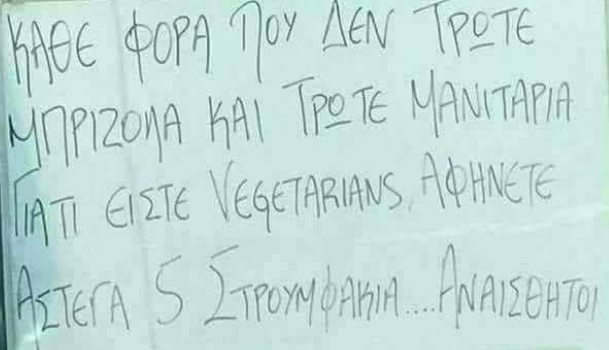 ΚΑΘΕ ΦΟΡΑ ΠΟΥ ΔΕΝ ΤΡΩΤΕ
ΜΠΡΙΖΟΛΑ ΚΑΙ ΤΡΩΤΕ ΜΑΝΙΤΑΡΙΑ
ΓΙΑΤΙ ΕΙΣΤΕ VEGETARIANS, ΑΦΗΝΕΤΕ
ΑΣΤΕΓΑ 5 ΣΤΡΟΥΜΦΑΚΙΑ....ΑΝΑΙΣΘΗΤΟΙ